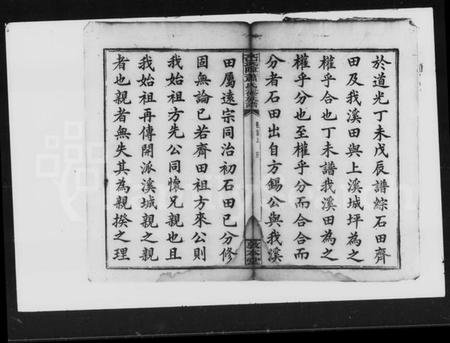 於道光丁未戊辰譜綜石田齊
田及我溪田與上溪城坪為之
權乎合也丁未譜我溪田為之
權乎分也至權乎分而合合而
分者石田出自方錫公與我溪
田屬遠宗同治初石田已分修
固無論已若齊田祖方來公則
我始祖方先公同懷兄親也且
我始祖再傳開派溪城之親
者也親者無失其為親揆之理